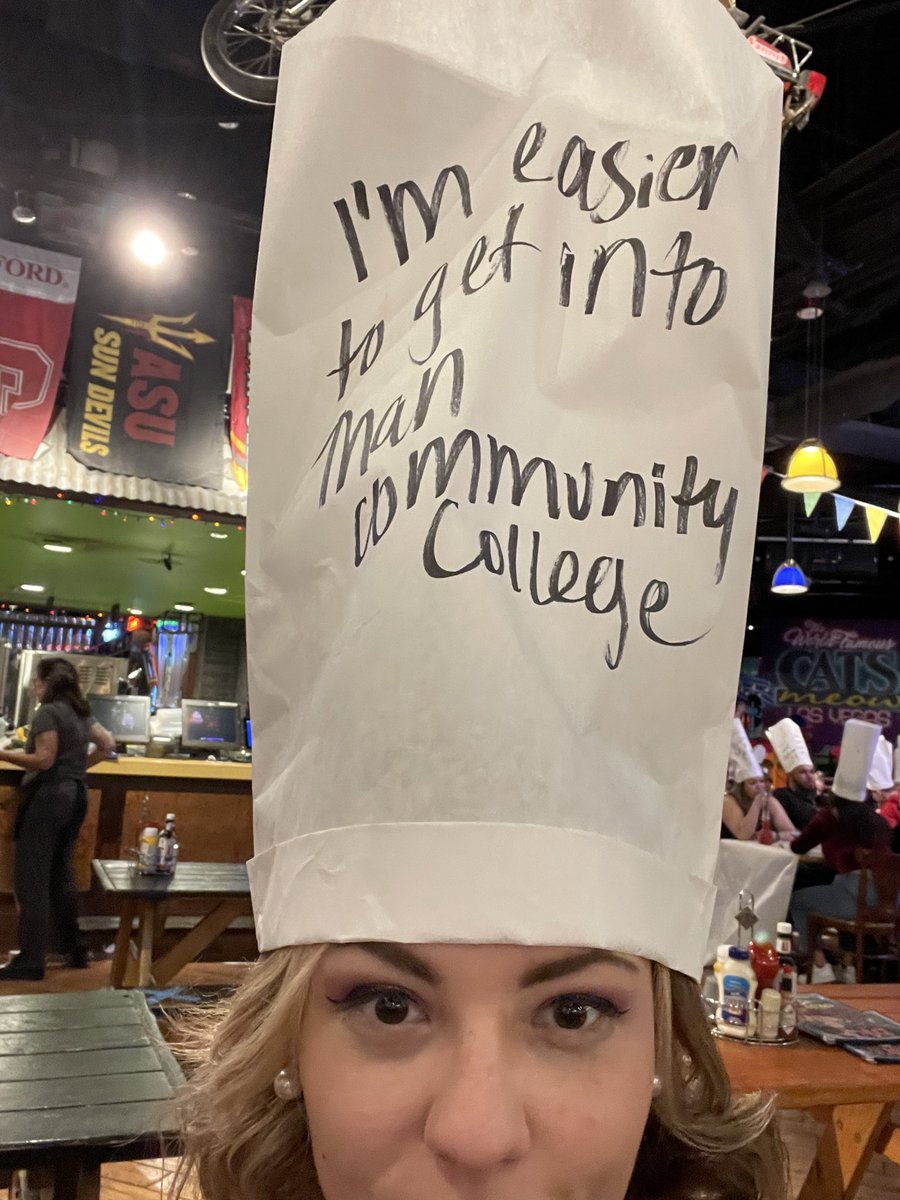 I'm easier
to get into
man
community
College
FORD
ASU
SUN DEVILS
The
World Famous
CATS
meow
LAS VEGAS